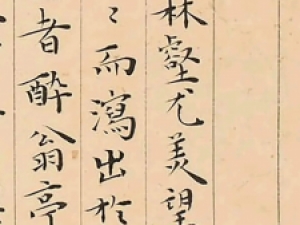 林壑尤美望
〻而瀉出於
者醉翁亭